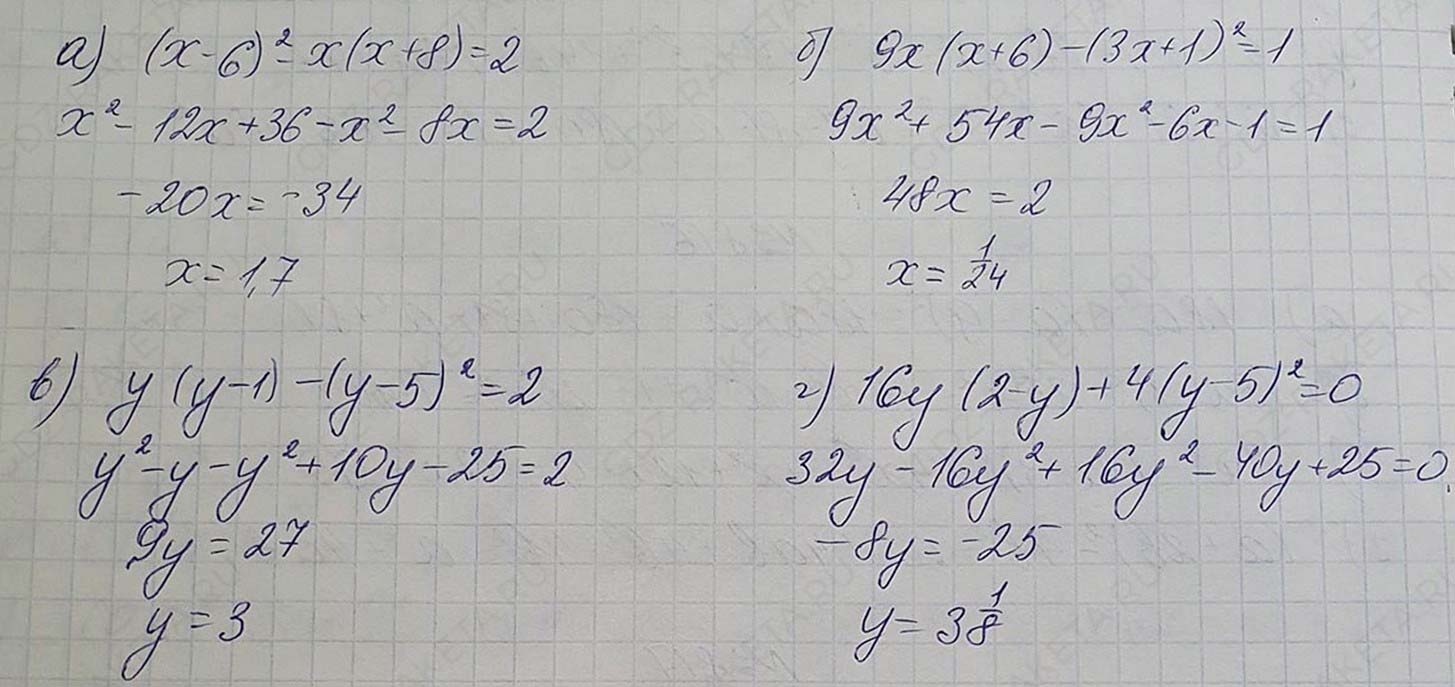 а) (x-6)²-x(x+8)=2
x²-12x+36-x²-8x=2
-20x=-34
x=1,7
б) 9x(x+6)-(3x+1)²=1
9x²+54x-9x²-6x-1=1
48x=2
x=1/24
в) y(y-1)-(y-5)²=2
y²-y-y²+10y-25=2
9y=27
y=3
г) 16y(2-y)+4(y-5)²=0
32y-16y²+16y²-40y+25=0
-8y=-25
y=3 1/8